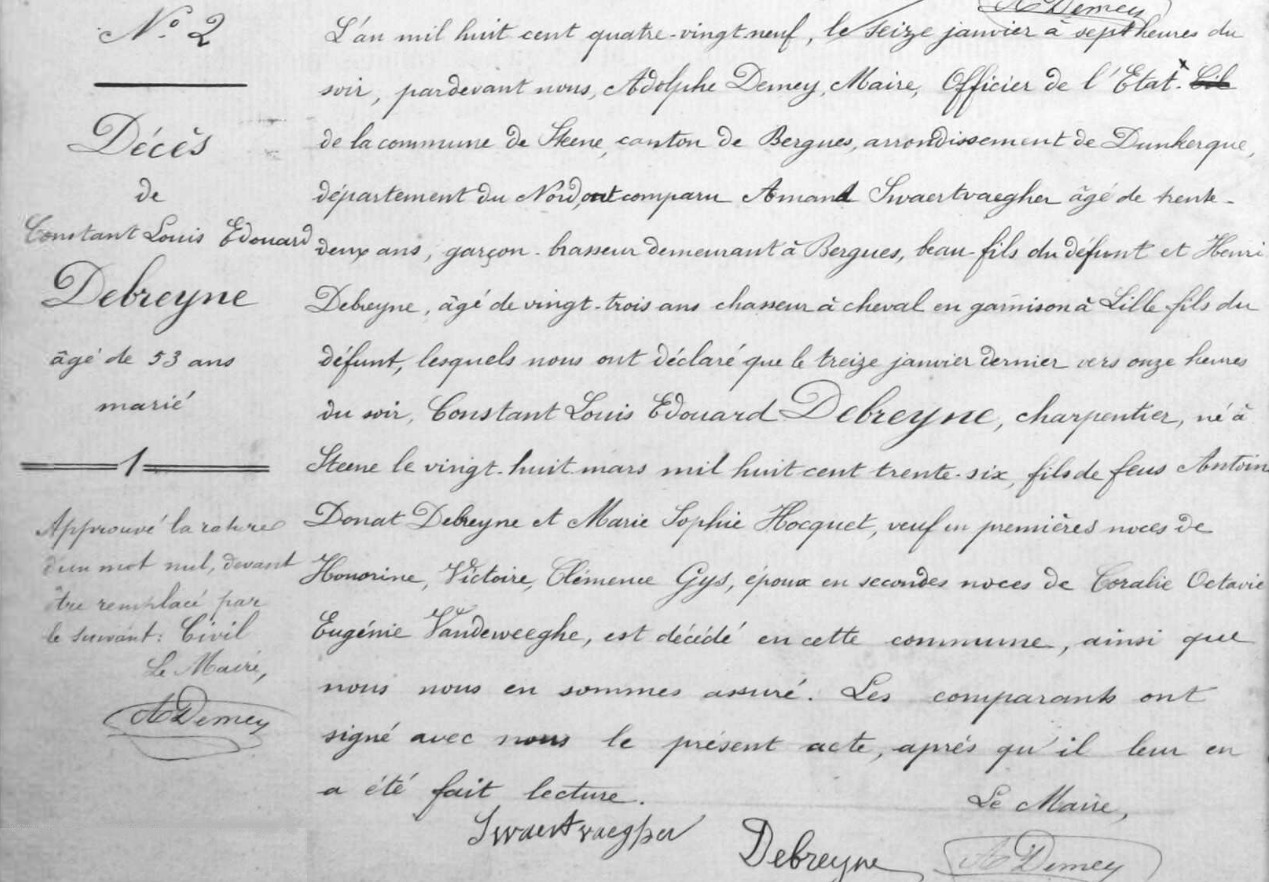 A Demey
N° 2
Décès
de
Constant Louis Edouard
Debreyne
âgé de 53 ans
marié
1
Approuvé la rature
d'un mot nul, devant
être remplacé par
le suivant: Civil
Le Maire,
A Demey
L'an mil huit cent quatre-vingt-neuf, le seize janvier à sept heures du
soir, pardevant nous, Adolphe Demey, Maire, Officier de l'Etat x
de la commune de Steene, canton de Bergues, arrondissement de Dunkerque,
département du Nord, ont comparu Amand Swaertvaegher âgé de trente-
deux ans, garçon-brasseur demeurant à Bergues, beau-fils du défunt et Henri
Debreyne, âgé de vingt-trois ans chasseur à cheval en garnison à Lille fils du
défunt, lesquels nous ont déclaré que le treize janvier dernier vers onze heures
du soir, Constant Louis Edouard Debreyne, charpentier, né à
Steene le vingt-huit mars mil huit cent trente-six, fils de feus Antoin
Donat Debreyne et Marie Sophie Hocquet, veuf en premières noces de
Honorine, Victoire, Clémence Gys, époux en secondes noces de Coralie Octavie
Eugénie Vandeweeghe, est décédé en cette commune, ainsi que
nous nous en sommes assuré. Les comparants ont
signé avec nous le présent acte, après qu'il leur en
a été fait lecture.
Le Maire,
Swaertvaegher
Debreyne
A Demey